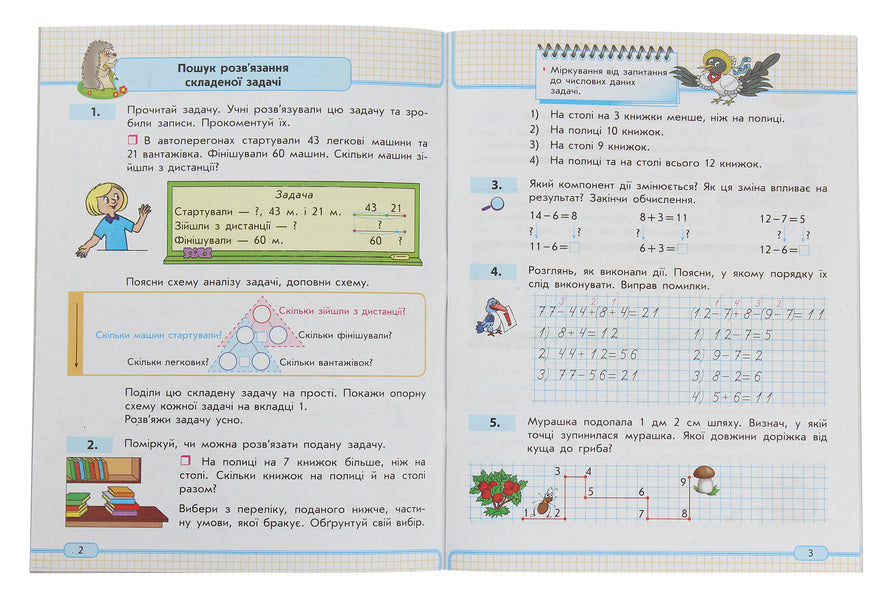 Пошук розв'язання
складеної задачі
1. Прочитай задачу. Учні розв'язували цю задачу та зро-
били записи. Прокоментуй їх.
В автоперегонах стартували 43 легкові машини та
21 вантажівка. Фінішували 60 машин. Скільки машин зі-
йшли з дистанції?
Задача
Стартували — ?, 43 м. і 21 м.
43 21
Зійшли з дистанції — ?
?
Фінішували — 60 м.
60 ?
Поясни схему аналізу задачі, доповни схему.
Скільки зійшли з дистанції?
Скільки машин стартували? Скільки фінішували?
Скільки легкових? Скільки вантажівок?
Поділи цю складену задачу на прості. Покажи опорну
схему кожної задачі на вкладці 1.
Розв'яжи задачу усно.
2. Поміркуй, чи можна розв'язати подану задачу.
На полиці на 7 книжок більше, ніж на
столі. Скільки книжок на полиці й на столі
разом?
Вибери з переліку, поданого нижче, части-
ну умови, якої бракує. Обґрунтуй свій вибір.
2
• Міркування від запитання
до числових даних
задачі.
1) На столі на 3 книжки менше, ніж на полиці.
2) На полиці 10 книжок.
3) На столі 9 книжок.
4) На полиці та на столі всього 12 книжок.
3. Який компонент дії змінюється? Як ця зміна впливає на
результат? Закінчи обчислення.
14 – 6 = 8 8 + 3 = 11 12 – 7 = 5
? ? ? ? ? ?
11 – 6 = 6 + 3 = 12 – 6 =
4. Розглянь, як виконали дії. Поясни, у якому порядку їх
слід виконувати. Виправ помилки.
3 2 1 1 4 3 2
77–44+(8+4)=21 (12–7)+8–(9–7)=11
1) 8+4=12 1) 12–7=5
2) 44+12=56 2) 9–7=2
3) 77–56=21 3) 8–2=6
4) 5+6=11
5. Мурашка подолала 1 дм 2 см шляху. Визнач, у якій
точці зупинилася мурашка. Якої довжини доріжка від
куща до гриба?
3 4
9
5 6
1 2 7 8
3